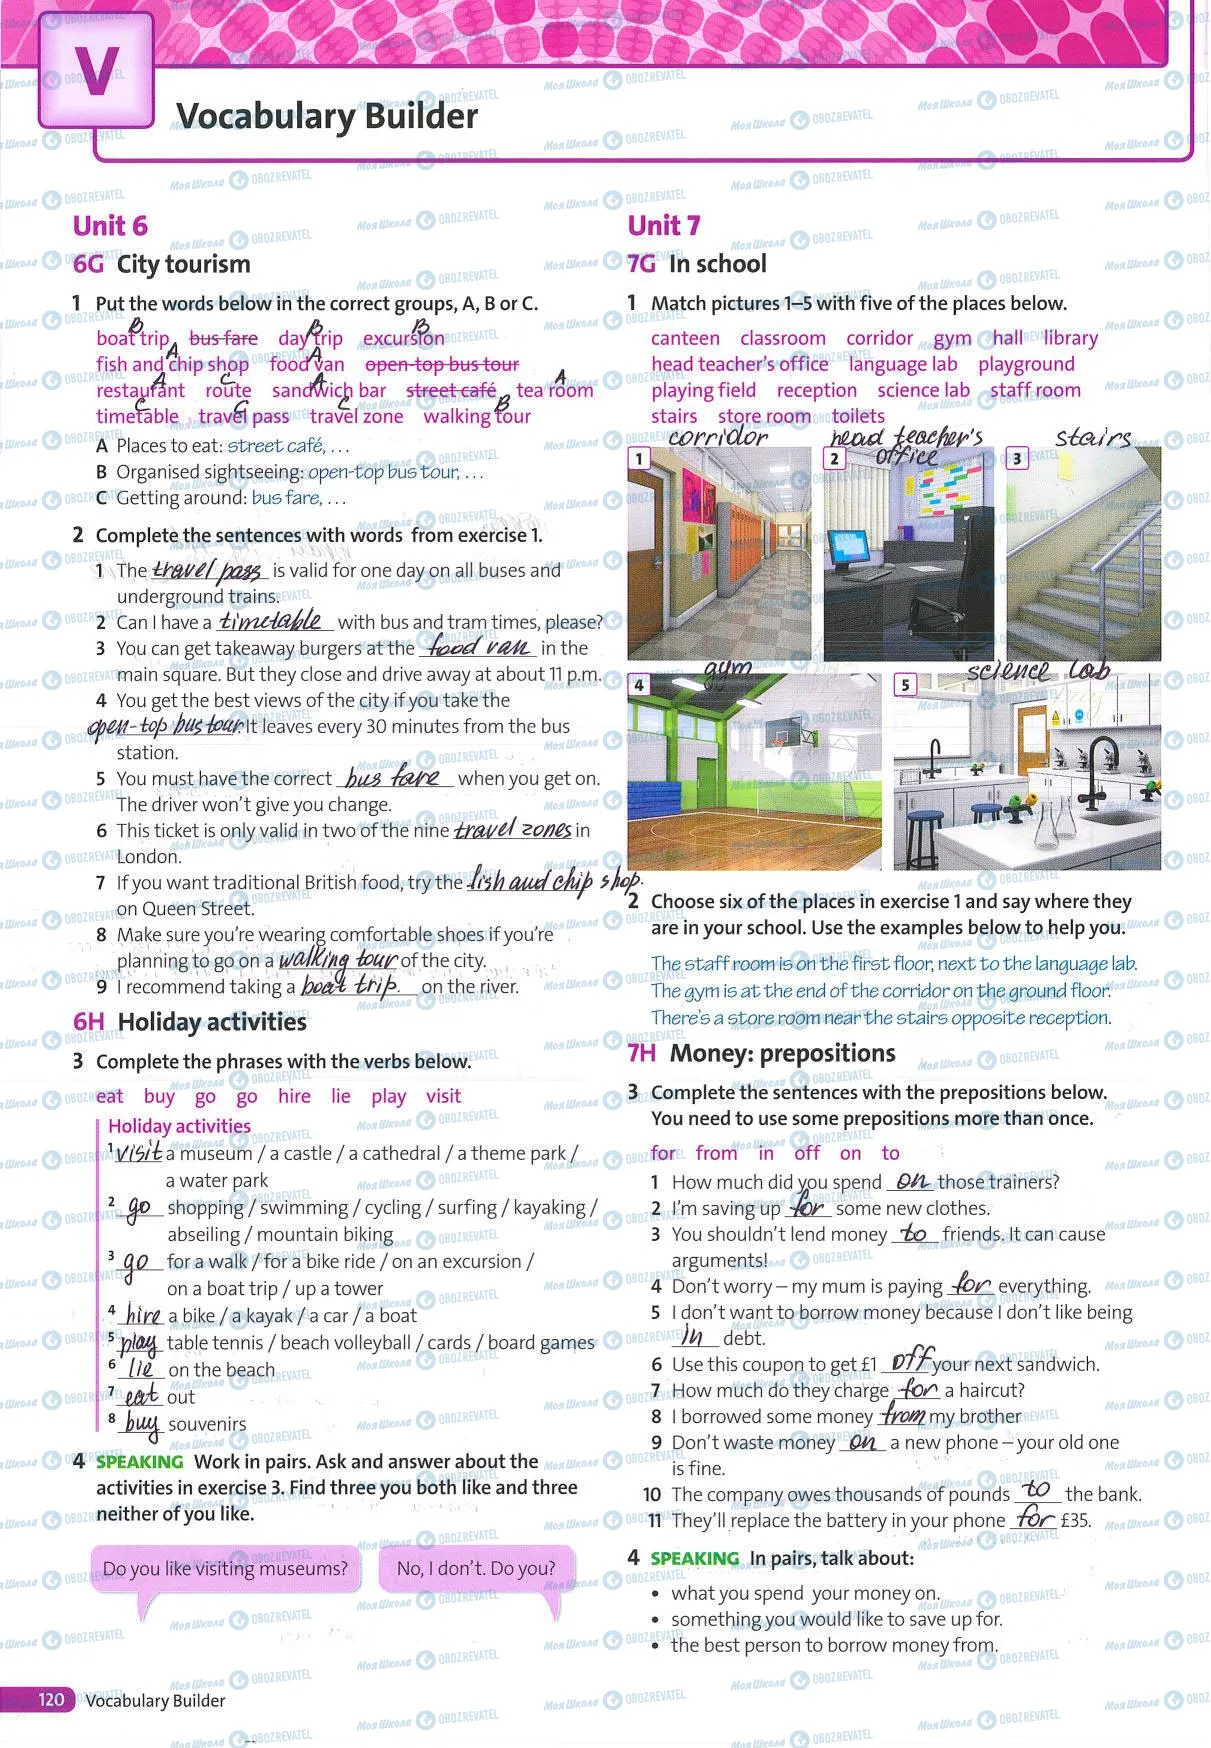 V
Vocabulary Builder
Unit 6
6G City tourism
1 Put the words below in the correct groups, A, B or C.
B B B
boat trip bus fare day trip excursion
A A
fish and chip shop food van open-top bus tour
A C A A
restaurant route sandwich bar street café tea room
C C C B
timetable travel pass travel zone walking tour
A Places to eat: street café, ...
B Organised sightseeing: open-top bus tour, ...
C Getting around: bus fare, ...
2 Complete the sentences with words from exercise 1.
1 The travel pass is valid for one day on all buses and
underground trains.
2 Can I have a timetable with bus and tram times, please?
3 You can get takeaway burgers at the food van in the
main square. But they close and drive away at about 11 p.m.
4 You get the best views of the city if you take the
open-top bus tour. It leaves every 30 minutes from the bus
station.
5 You must have the correct bus fare when you get on.
The driver won't give you change.
6 This ticket is only valid in two of the nine travel zones in
London.
7 If you want traditional British food, try the fish and chip shop.
on Queen Street.
8 Make sure you're wearing comfortable shoes if you're
planning to go on a walking tour of the city.
9 I recommend taking a boat trip. on the river.
6H Holiday activities
3 Complete the phrases with the verbs below.
eat buy go go hire lie play visit
Holiday activities
1 visit a museum / a castle / a cathedral / a theme park /
a water park
2 go shopping / swimming / cycling / surfing / kayaking /
abseiling / mountain biking
3 go for a walk / for a bike ride / on an excursion /
on a boat trip / up a tower
4 hire a bike / a kayak / a car / a boat
5 play table tennis / beach volleyball / cards / board games
6 lie on the beach
7 eat out
8 buy souvenirs
4 SPEAKING Work in pairs. Ask and answer about the
activities in exercise 3. Find three you both like and three
neither of you like.
Do you like visiting museums?
No, I don't. Do you?
Unit 7
7G In school
1 Match pictures 1–5 with five of the places below.
canteen classroom corridor gym hall library
head teacher's office language lab playground
playing field reception science lab staff room
stairs store room toilets
corridor
head teacher's
office
stairs
1
2
3
gym
science lab
4
5
2 Choose six of the places in exercise 1 and say where they
are in your school. Use the examples below to help you.
The staff room is on the first floor, next to the language lab.
The gym is at the end of the corridor on the ground floor.
There's a store room near the stairs opposite reception.
7H Money: prepositions
3 Complete the sentences with the prepositions below.
You need to use some prepositions more than once.
for from in off on to
1 How much did you spend on those trainers?
2 I'm saving up for some new clothes.
3 You shouldn't lend money to friends. It can cause
arguments!
4 Don't worry – my mum is paying for everything.
5 I don't want to borrow money because I don't like being
in debt.
6 Use this coupon to get £1 off your next sandwich.
7 How much do they charge for a haircut?
8 I borrowed some money from my brother
9 Don't waste money on a new phone – your old one
is fine.
10 The company owes thousands of pounds to the bank.
11 They'll replace the battery in your phone for £35.
4 SPEAKING In pairs, talk about:
• what you spend your money on.
• something you would like to save up for.
• the best person to borrow money from.
120 Vocabulary Builder
Моя Школа OBOZREVATEL